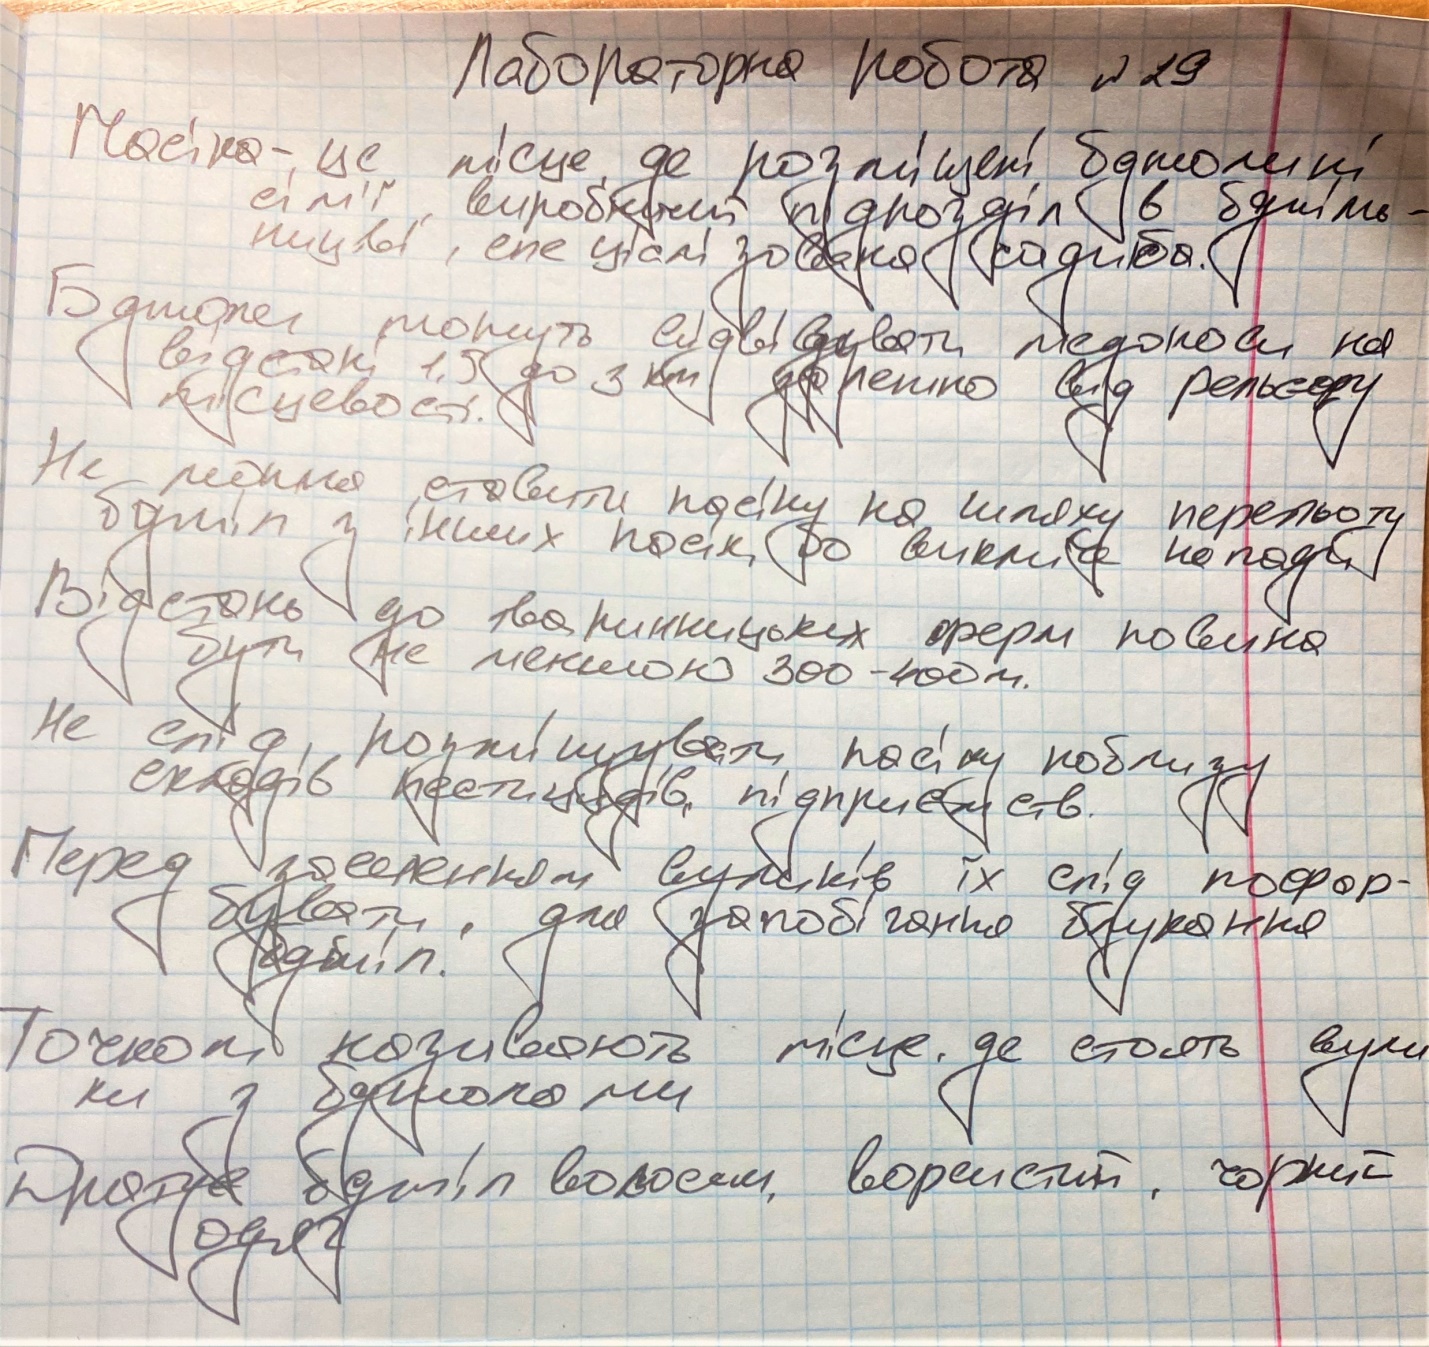 Лабораторна робота №29
Пасіка-, це місце, де розміщені бджолині
сім'ї, виробничий підрозділ в бджіль-
ництві, спеціалізована садиба.
Бджоли можуть відвідувати медоноси на
відстані 1,5 до 3 км залежно від рельєфу
місцевості.
Не можна ставити пасіку на шляху перельоту
бджіл з інших пасік, бо викличе напади
Відстань до тваринницьких ферм повина
бути не меншою 300-400м.
Не слід, розміщувати пасіку поблизу
складів пестицидів, підприємств.
Перед заселенням вуликів їх слід пофар-
бувати, для запобігання блукання
бджіл.
Точком називають місце, де стоять вули
ки з бджолами
Дратує бджіл волосся, ворсистий, чорний
одяг